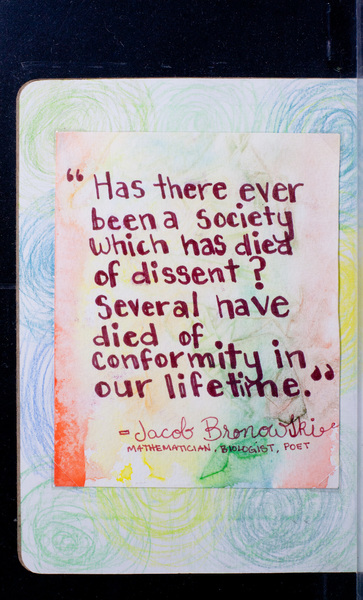 “Has there ever
been a society
which has died
of dissent?
Several have
died of
conformity in
our lifetime.”
- Jacob Bronowski
MATHEMATICIAN, BIOLOGIST, POET